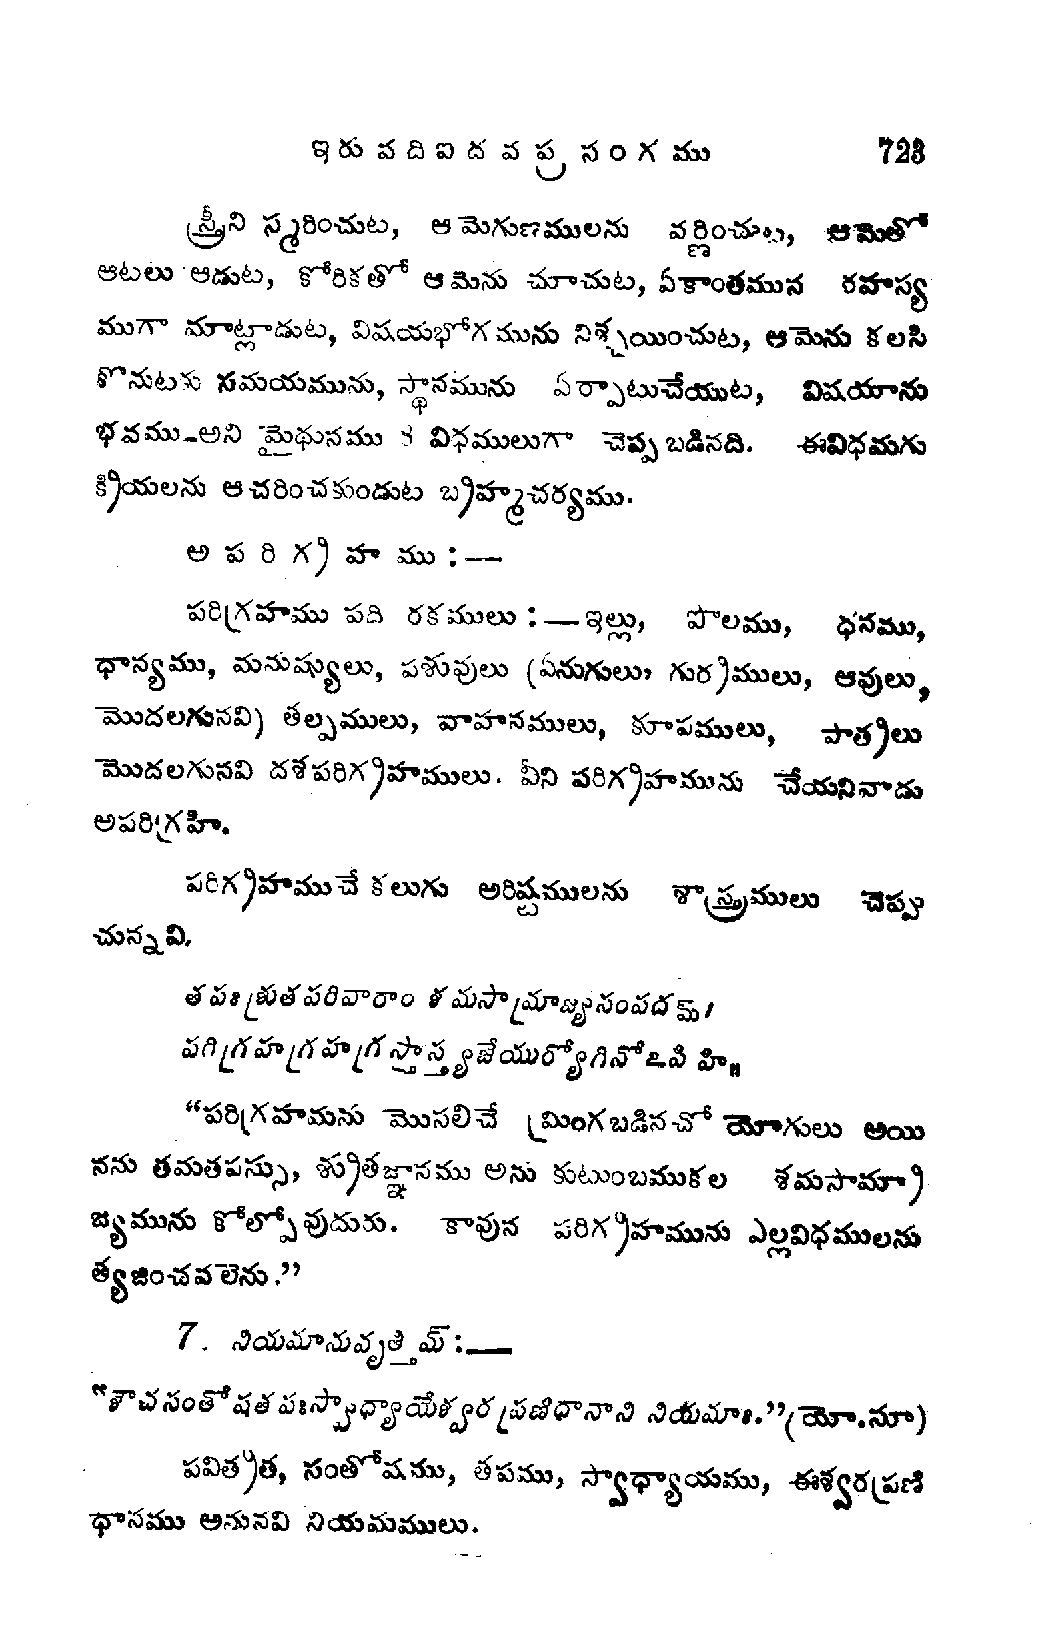 ఇరువదిఐదవ ప్రసంగము 723
స్త్రీని స్మరించుట, ఆమెగుణములను వర్ణించుట, ఆమెతో
ఆటలు ఆడుట, కోరికతో ఆమెను చూచుట, ఏకాంతమున రహస్య
ముగా మాట్లాడుట, విషయభోగమును నిశ్చయించుట, ఆమెను కలసి
కొనుటకు సమయమును, స్థానమును ఏర్పాటుచేయుట, విషయాను
భవము-అని మైథునము 8 విధములుగా చెప్పబడినది. ఈవిధమగు
క్రియలను ఆచరించకుండుట బ్రహ్మచర్యము.
అపరిగ్రహము :—
పరిగ్రహము పది రకములు :— ఇల్లు, పొలము, ధనము,
ధాన్యము, మనుష్యులు, పశువులు (ఏనుగులు, గుర్రములు, ఆవులు,
మొదలగునవి) తల్పములు, వాహనములు, కూపములు, పాత్రలు
మొదలగునవి దశపరిగ్రహములు. వీని పరిగ్రహమును చేయనివాడు
అపరిగ్రహి.
పరిగ్రహముచే కలుగు అరిష్టములను శాస్త్రములు చెప్పు
చున్నవి.
తపఃశ్రుతపరివారాం శమసామ్రాజ్యసంపదమ్।
పరిగ్రహగ్రహగ్రస్తాస్త్యజేయుర్యోగినోఽపి హి॥
“పరిగ్రహమను మొసలిచే మ్రింగబడినచో యోగులు అయి
నను తమతపస్సు, శ్రుతజ్ఞానము అను కుటుంబముకల శమసామ్రా
జ్యమును కోల్పోవుదురు. కావున పరిగ్రహమును ఎల్లవిధములను
త్యజించవలెను.”
7. నియమానువృత్తిమ్ :—
“శౌచసంతోషతపఃస్వాధ్యాయేశ్వరప్రణిధానాని నియమాః.”(యో.సూ)
పవిత్రత, సంతోషము, తపము, స్వాధ్యాయము, ఈశ్వరప్రణి
ధానము అనునవి నియమములు.